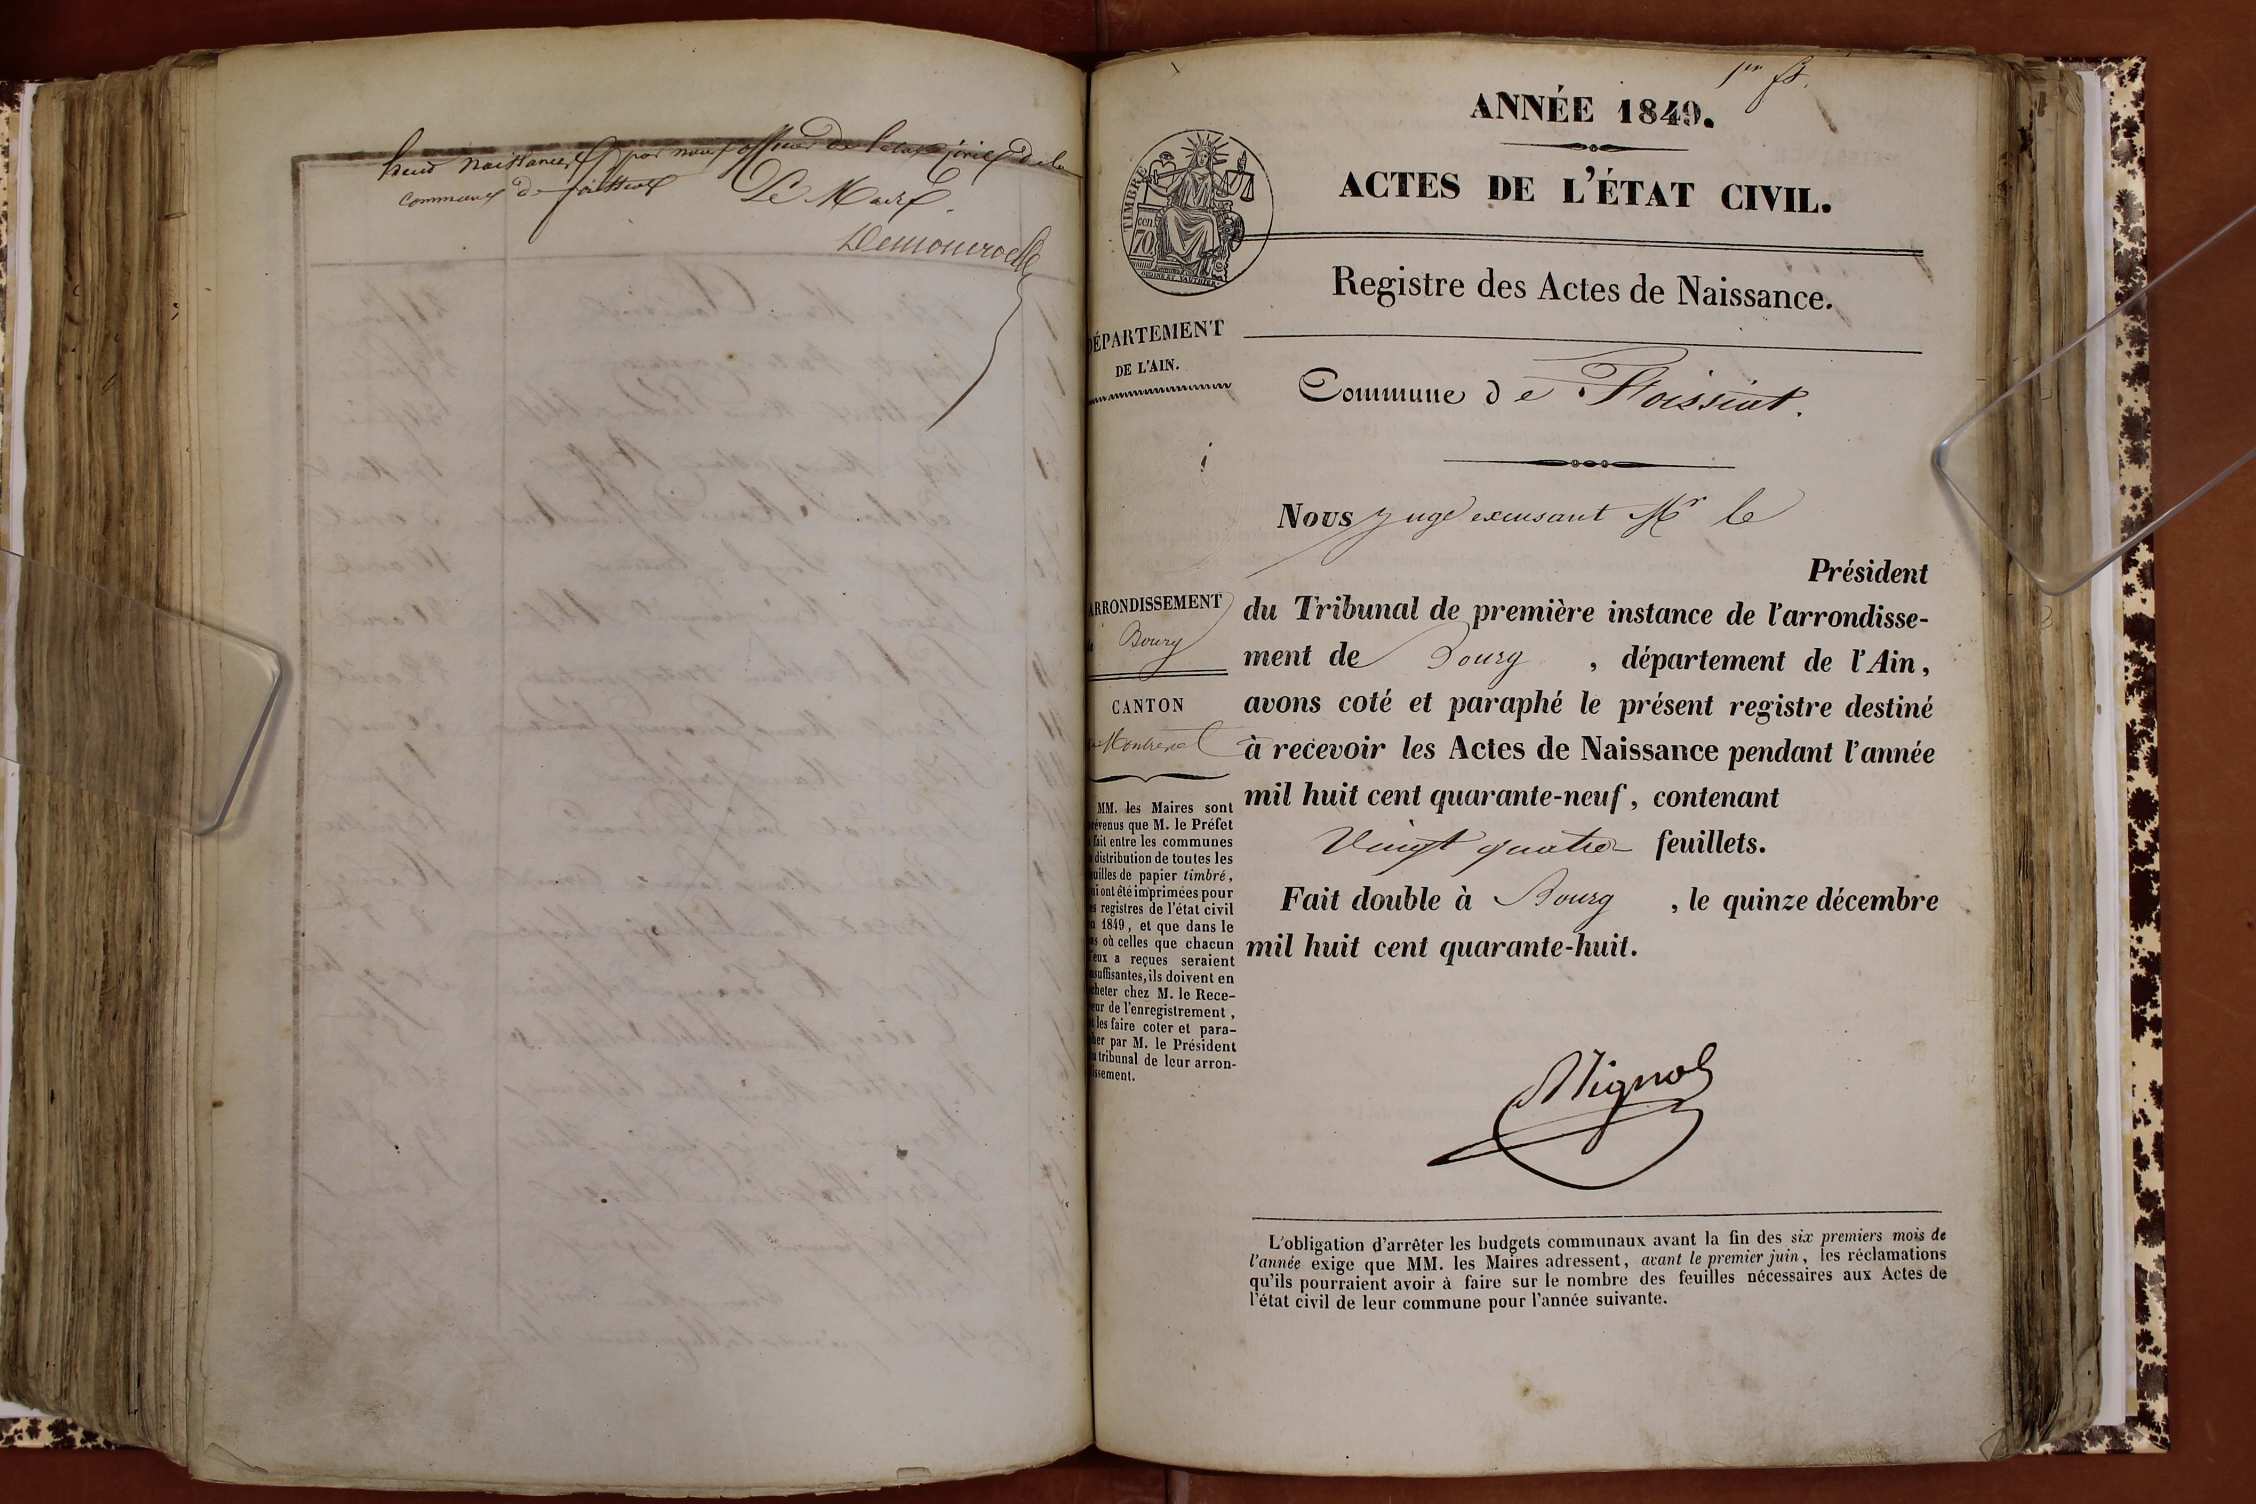 huit naissances par nous officier de l'état civil de la
commune de foissiat Le Maire.
1er ft.
ANNÉE 1849.
ACTES DE L'ÉTAT CIVIL.
TIMBRE
70
Registre des Actes de Naissance.
DÉPARTEMENT
DE L'AIN.
Commune de Foissiat.
Nous juge excusant Mr le
Président
du Tribunal de première instance de l'arrondisse-
ment de Bourg, département de l'Ain,
avons coté et paraphé le présent registre destiné
à recevoir les Actes de Naissance pendant l'année
mil huit cent quarante-neuf, contenant
Vingt quatre feuillets.
Fait double à Bourg, le quinze décembre
mil huit cent quarante-huit.
Mignot
ARRONDISSEMENT
Bourg
CANTON
Montrevel
MM. les Maires sont
révenus que M. le Préfet
fait entre les communes
distribution de toutes les
uilles de papier timbré,
ui ont été imprimées pour
es registres de l'état civil
n 1849, et que dans le
as où celles que chacun
'eux a reçues seraient
nsuffisantes, ils doivent en
cheter chez M. le Rece-
eur de l'enregistrement,
t les faire coter et para-
her par M. le Président
u tribunal de leur arron-
issement.
L'obligation d'arrêter les budgets communaux avant la fin des six premiers mois de
l'année exige que MM. les Maires adressent, avant le premier juin, les réclamations
qu'ils pourraient avoir à faire sur le nombre des feuilles nécessaires aux Actes de
l'état civil de leur commune pour l'année suivante.